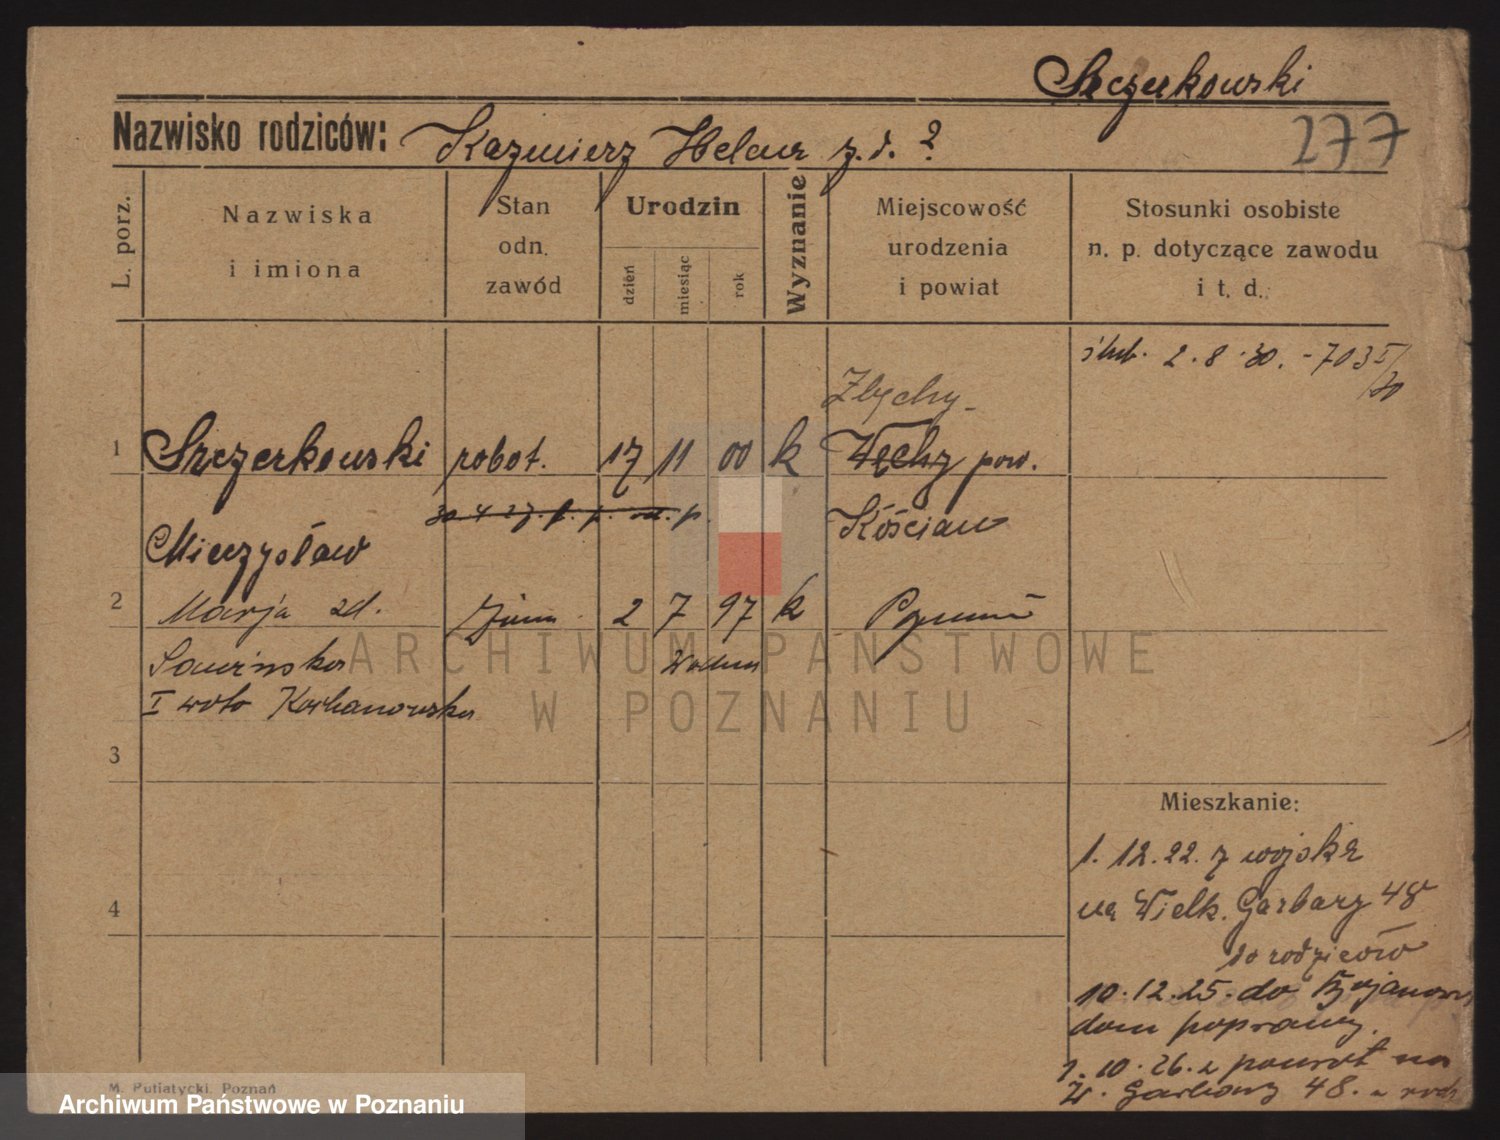 Szczerkowski
Nazwisko rodziców: Kazimierz Helena z. d. ?
277
L. porz.
Nazwiska
i imiona
Stan
odn.
zawód
Urodzin
dzień
miesiąc
rok
Wyznanie
Miejscowość
urodzenia
i powiat
Stosunki osobiste
n. p. dotyczące zawodu
i t. d.
ślub. 2.8.30. - 703 I/30
Zbęchy
1 Szczerkowski robot. 17 11 00 k Węchy pow.
30 4 27. p. p.
Mieczysław Kościan
2 Marja zd. żona 2 7 97 k Poznań
Sowińska
I voto Kochanowska
3
4
Mieszkanie:
1. 12.22. z wojska
na Wielk. Garbary 48
do rodziców
10.12.25. do Bojanowa
dom poprawy.
1.10.26. z powrot na
W. Garbary 48.
M. Putiatycki, Poznań
ARCHIWUM PAŃSTWOWE
W POZNANIU
Archiwum Państwowe w Poznaniu